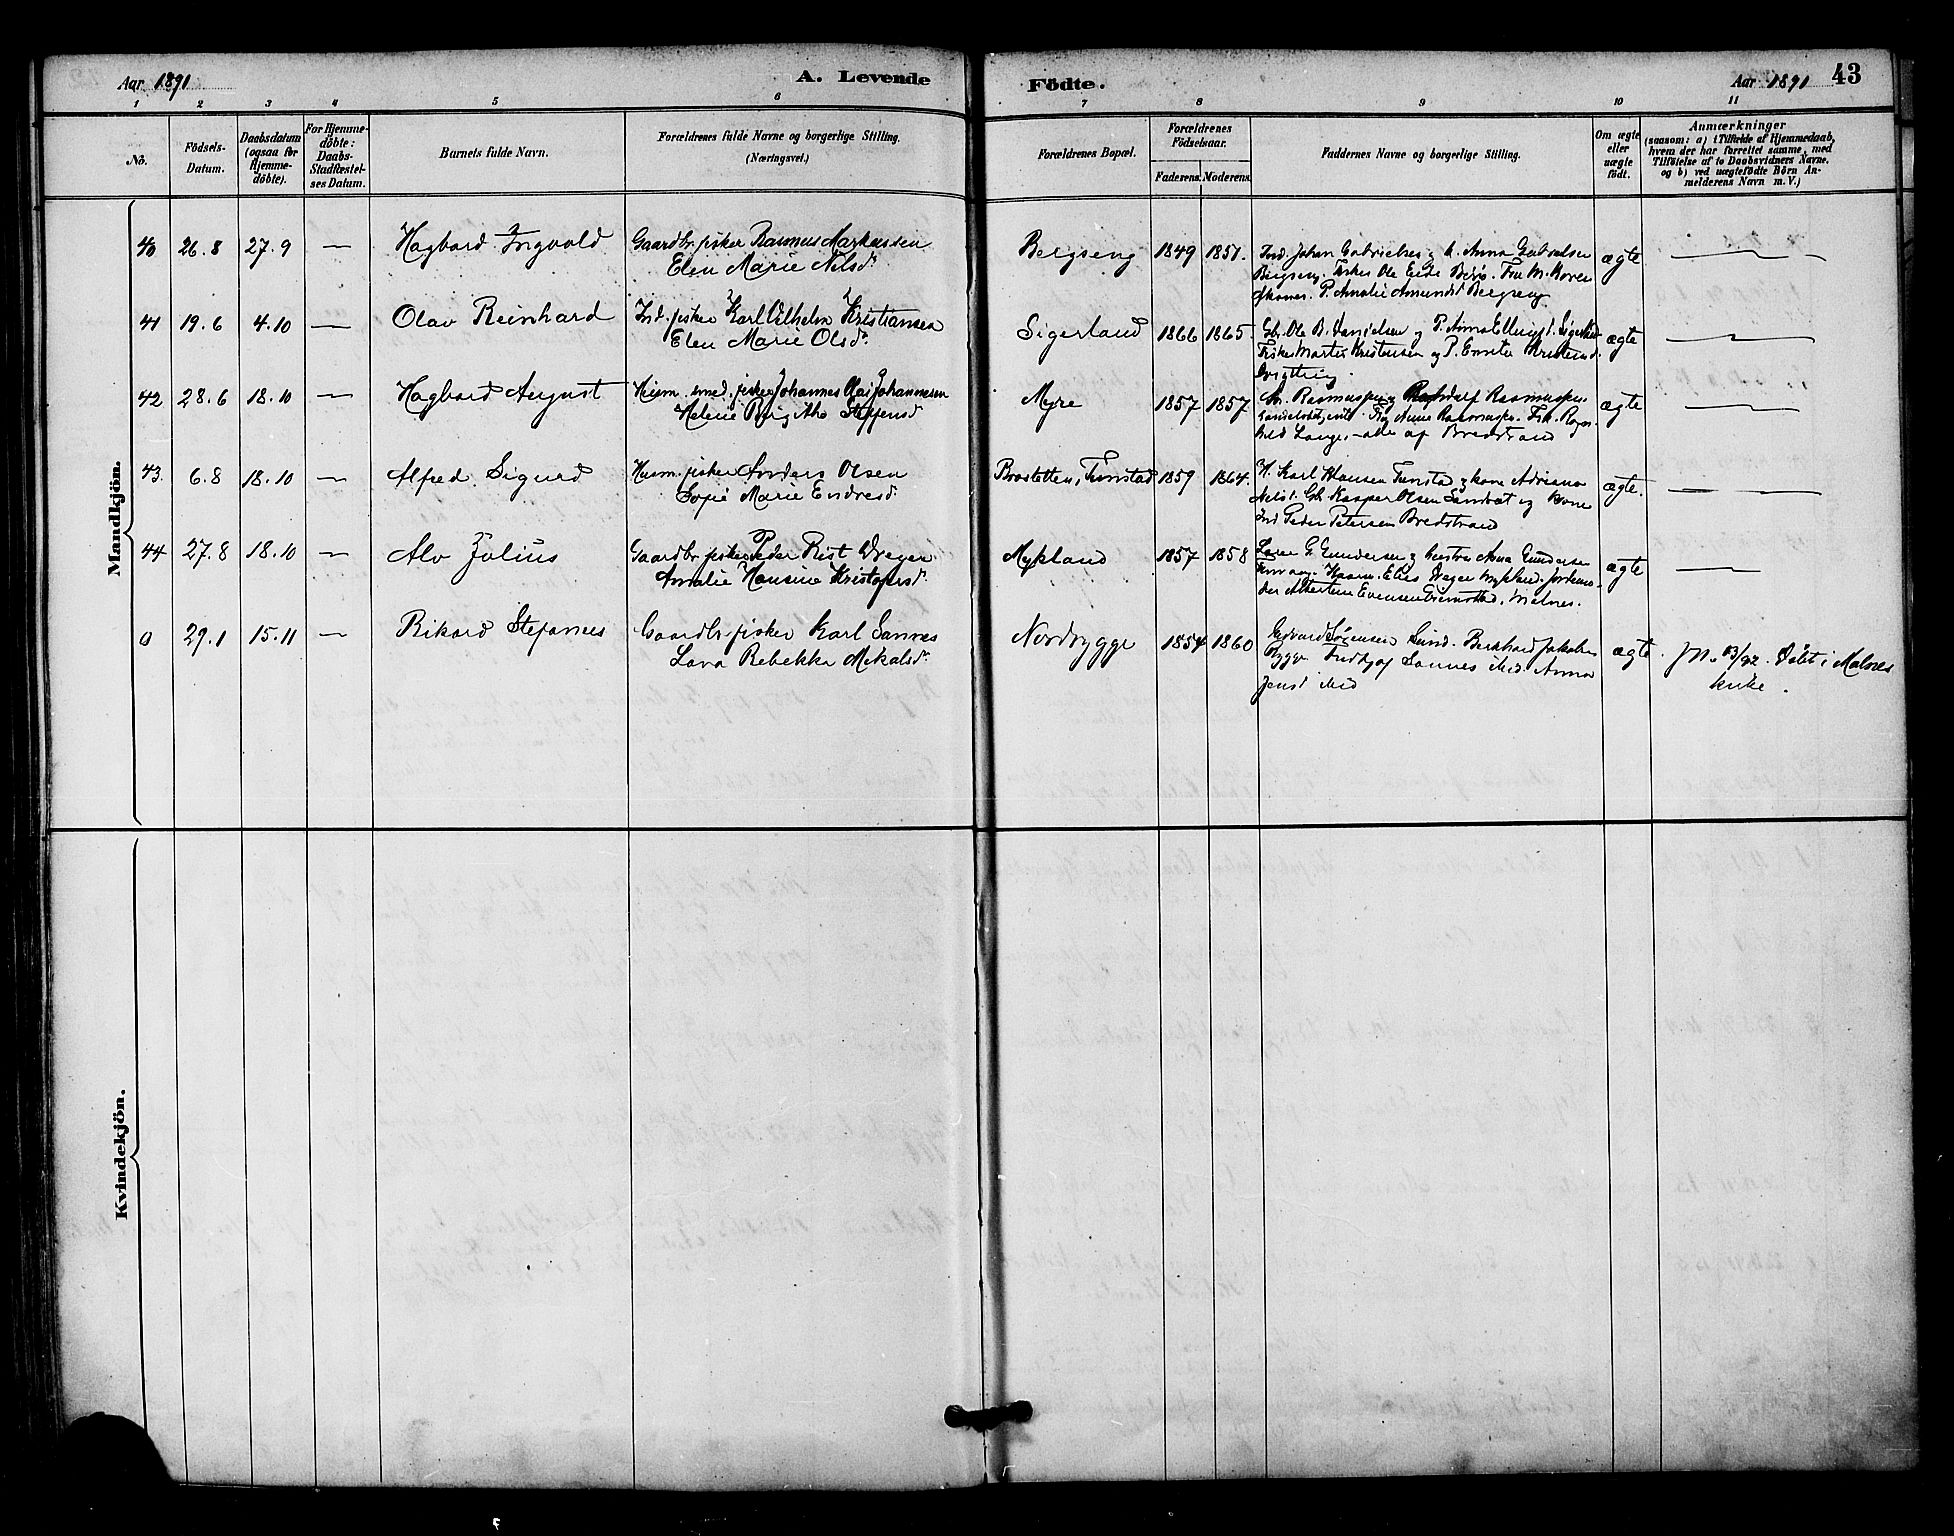 Aar 1891
A. Levende Födte.
Aar 1891
43
1 2 3 4 5 6 7 8 9 10 11
No.
Födsels-
Datum.
Daabsdatum
(ogsaa for
Hjemme-
döbte).
For Hjemme-
döbte:
Daabs-
Stadfæstel-
ses Datum.
Barnets fulde Navn.
Forældrenes fulde Navne og borgerlige Stilling.
(Næringsvei.)
Forældrenes Bopæl.
Forældrenes
Födselsaar.
Faderens. Moderens.
Faddernes Navne og borgerlige Stilling.
Om ægte
eller
uægte
födt.
Anmærkninger
(saasom: a) i Tilfælde af Hjemmedaab,
hvem der har forrettet samme, med
Tilföielse af to Daabsvidners Navne.
og b) ved uægtefödte Börn An-
melderens Navn m. V.)
Mandkjön.
40 26.8 27.9 — Hagbard Ingvald Gaardbr. fisker Rasmus Markussen
Elen Marie Nilsd.
Bergseng 1849 1851. Ind. Johan Gabrielsen og k. Anna Gabrielsen
Bergseng. Fisker Ole Eide
P. Amalie Amundsd Bergseng
ægte —
41 19.6 4.10 — Olav Reinhard Ind. fisker Karl Vilhelm Kristiansen
Elen Marie Olsd.
Sigerland 1866 1865. Gb. Ole B. Danielsen og P.
Fisker Martin Kristensen og P.
ægte —
42 28.6 18.10 — Hagbard August Husm. smed. fisker Johannes Olai Johannesen
Helene Birgithe Steffensd.
Myre 1857 1857 Rasmussen og Rasmussen
Anna Rasmussen. Frk. Ragn-
hild Lange, - alle af Bredstrand
ægte —
43. 6.8 18.10 — Alfred Sigurd Husm. fisker Anders Olsen
Sofie Marie Endresd.
Brosletten, Tunstad 1859 1864. H. Karl Hansen Tunstad og kone Adriana
Nilsd. Gb. Kasper Olsen Sandvæt og kone
Ind Peder Petersen Bredstrand
ægte. —
44 27.8 18.10 — Alv Julius Gaardbr. fisker Peder Rist Dreyer
Amalie Hansine Kristofersd.
Mykland 1857 1858 Lærer G. Gundersen og hustru Anna Gundersen
Elias Dreyer Mykland. Jordemo-
der Albertine Evensen Grimstad, Malnes.
ægte —
0 29.1 15.11 — Rikard Stefanus Gaardbr. fisker Karl Sannes
Lava Rebekka Mikalsd.
Nordbygge 1854 1860 Edvard Sørensen Sund. Berkhard Jakobs
Bygge. Fridtjof Sannes ibid. Anna
Jensd ibid
ægte. Døbt i Malnes
kirke.
Kvindekjön.